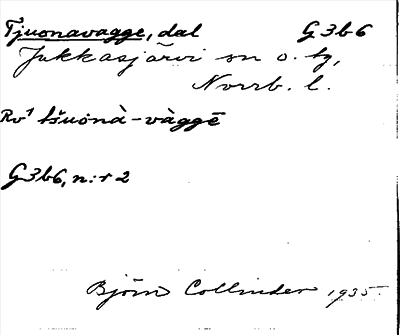 Tjuonavagge, dal G3b6
Jukkasjärvi sn o. tg,
Norrb. l.
Rv¹ tšuònà-vàggē
G3b6, n:r 2
Björn Collinder 1935.